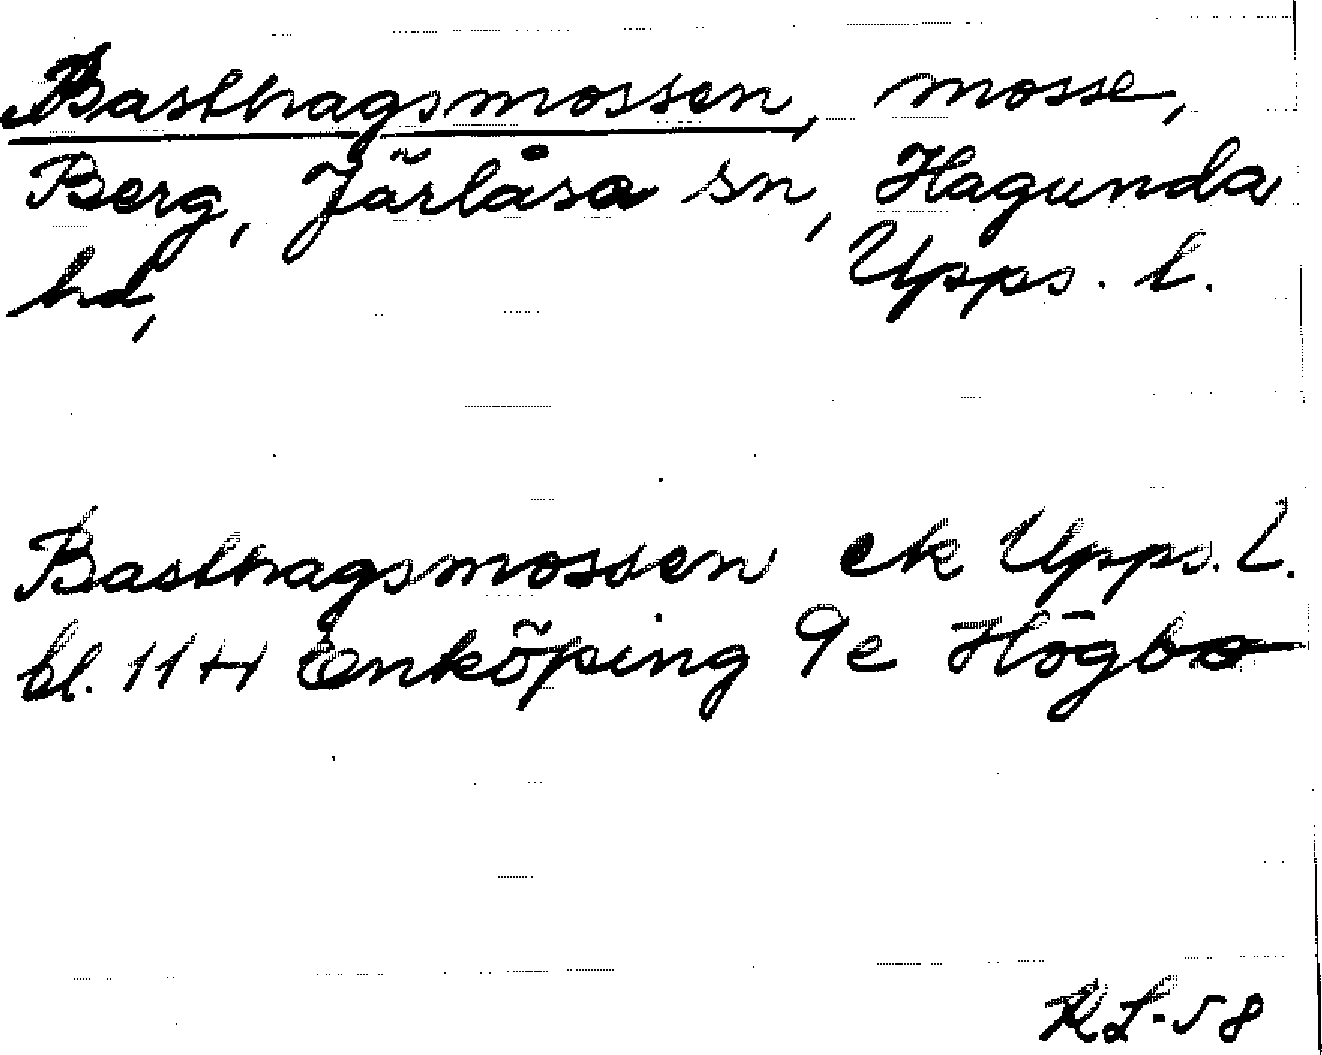 Basttragsmossen, mosse,
Berg, Järlåsa sn, Hagunda
hd, Upps. l.
Basttragsmossen ek Upps. l.
bl. 11 H Enköping 9e Högbo
KL-58